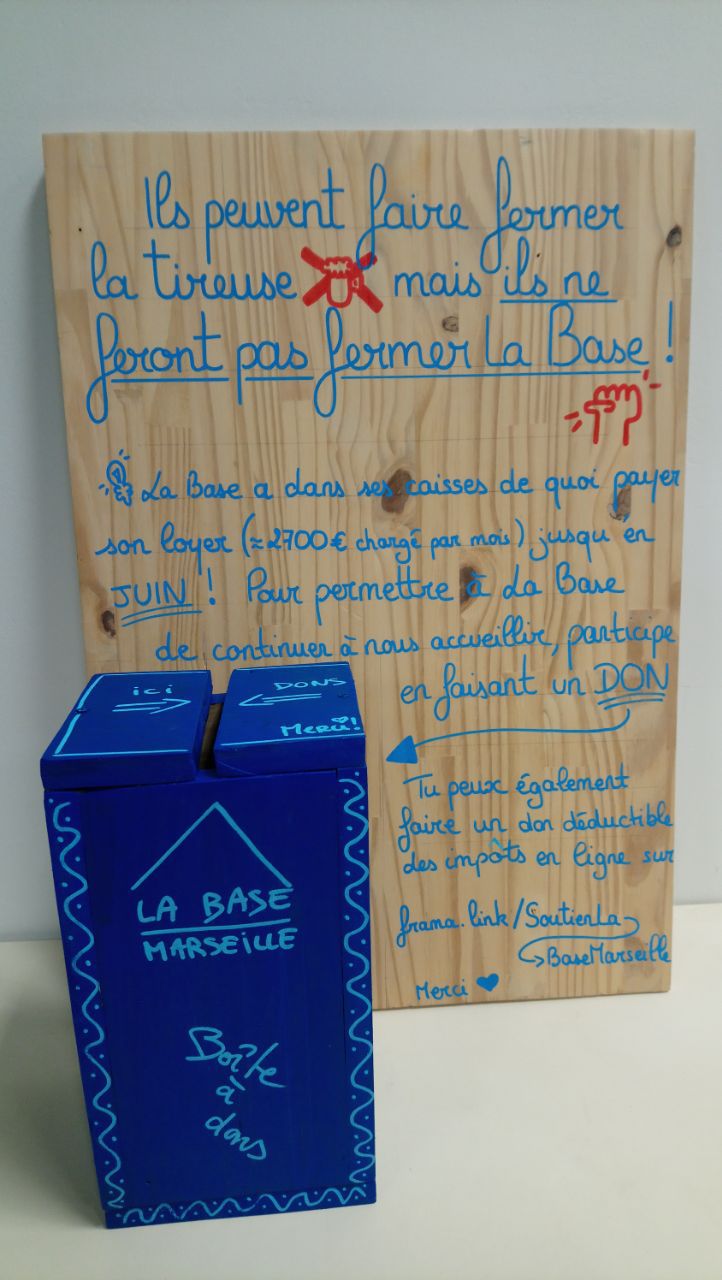 Ils peuvent faire fermer
la tireuse mais ils ne
feront pas fermer La Base !
La Base a dans ses caisses de quoi payer
son loyer (≈2700€ chargé par mois) jusqu'en
JUIN ! Pour permettre à La Base
de continuer à nous accueillir, participe
en faisant un DON
Tu peux également
faire un don déductible
des impôts en ligne sur
frama.link/SoutienLa
BaseMarseille
Merci
ici
DONS
Merci!
LA BASE
MARSEILLE
Boîte
à
dons